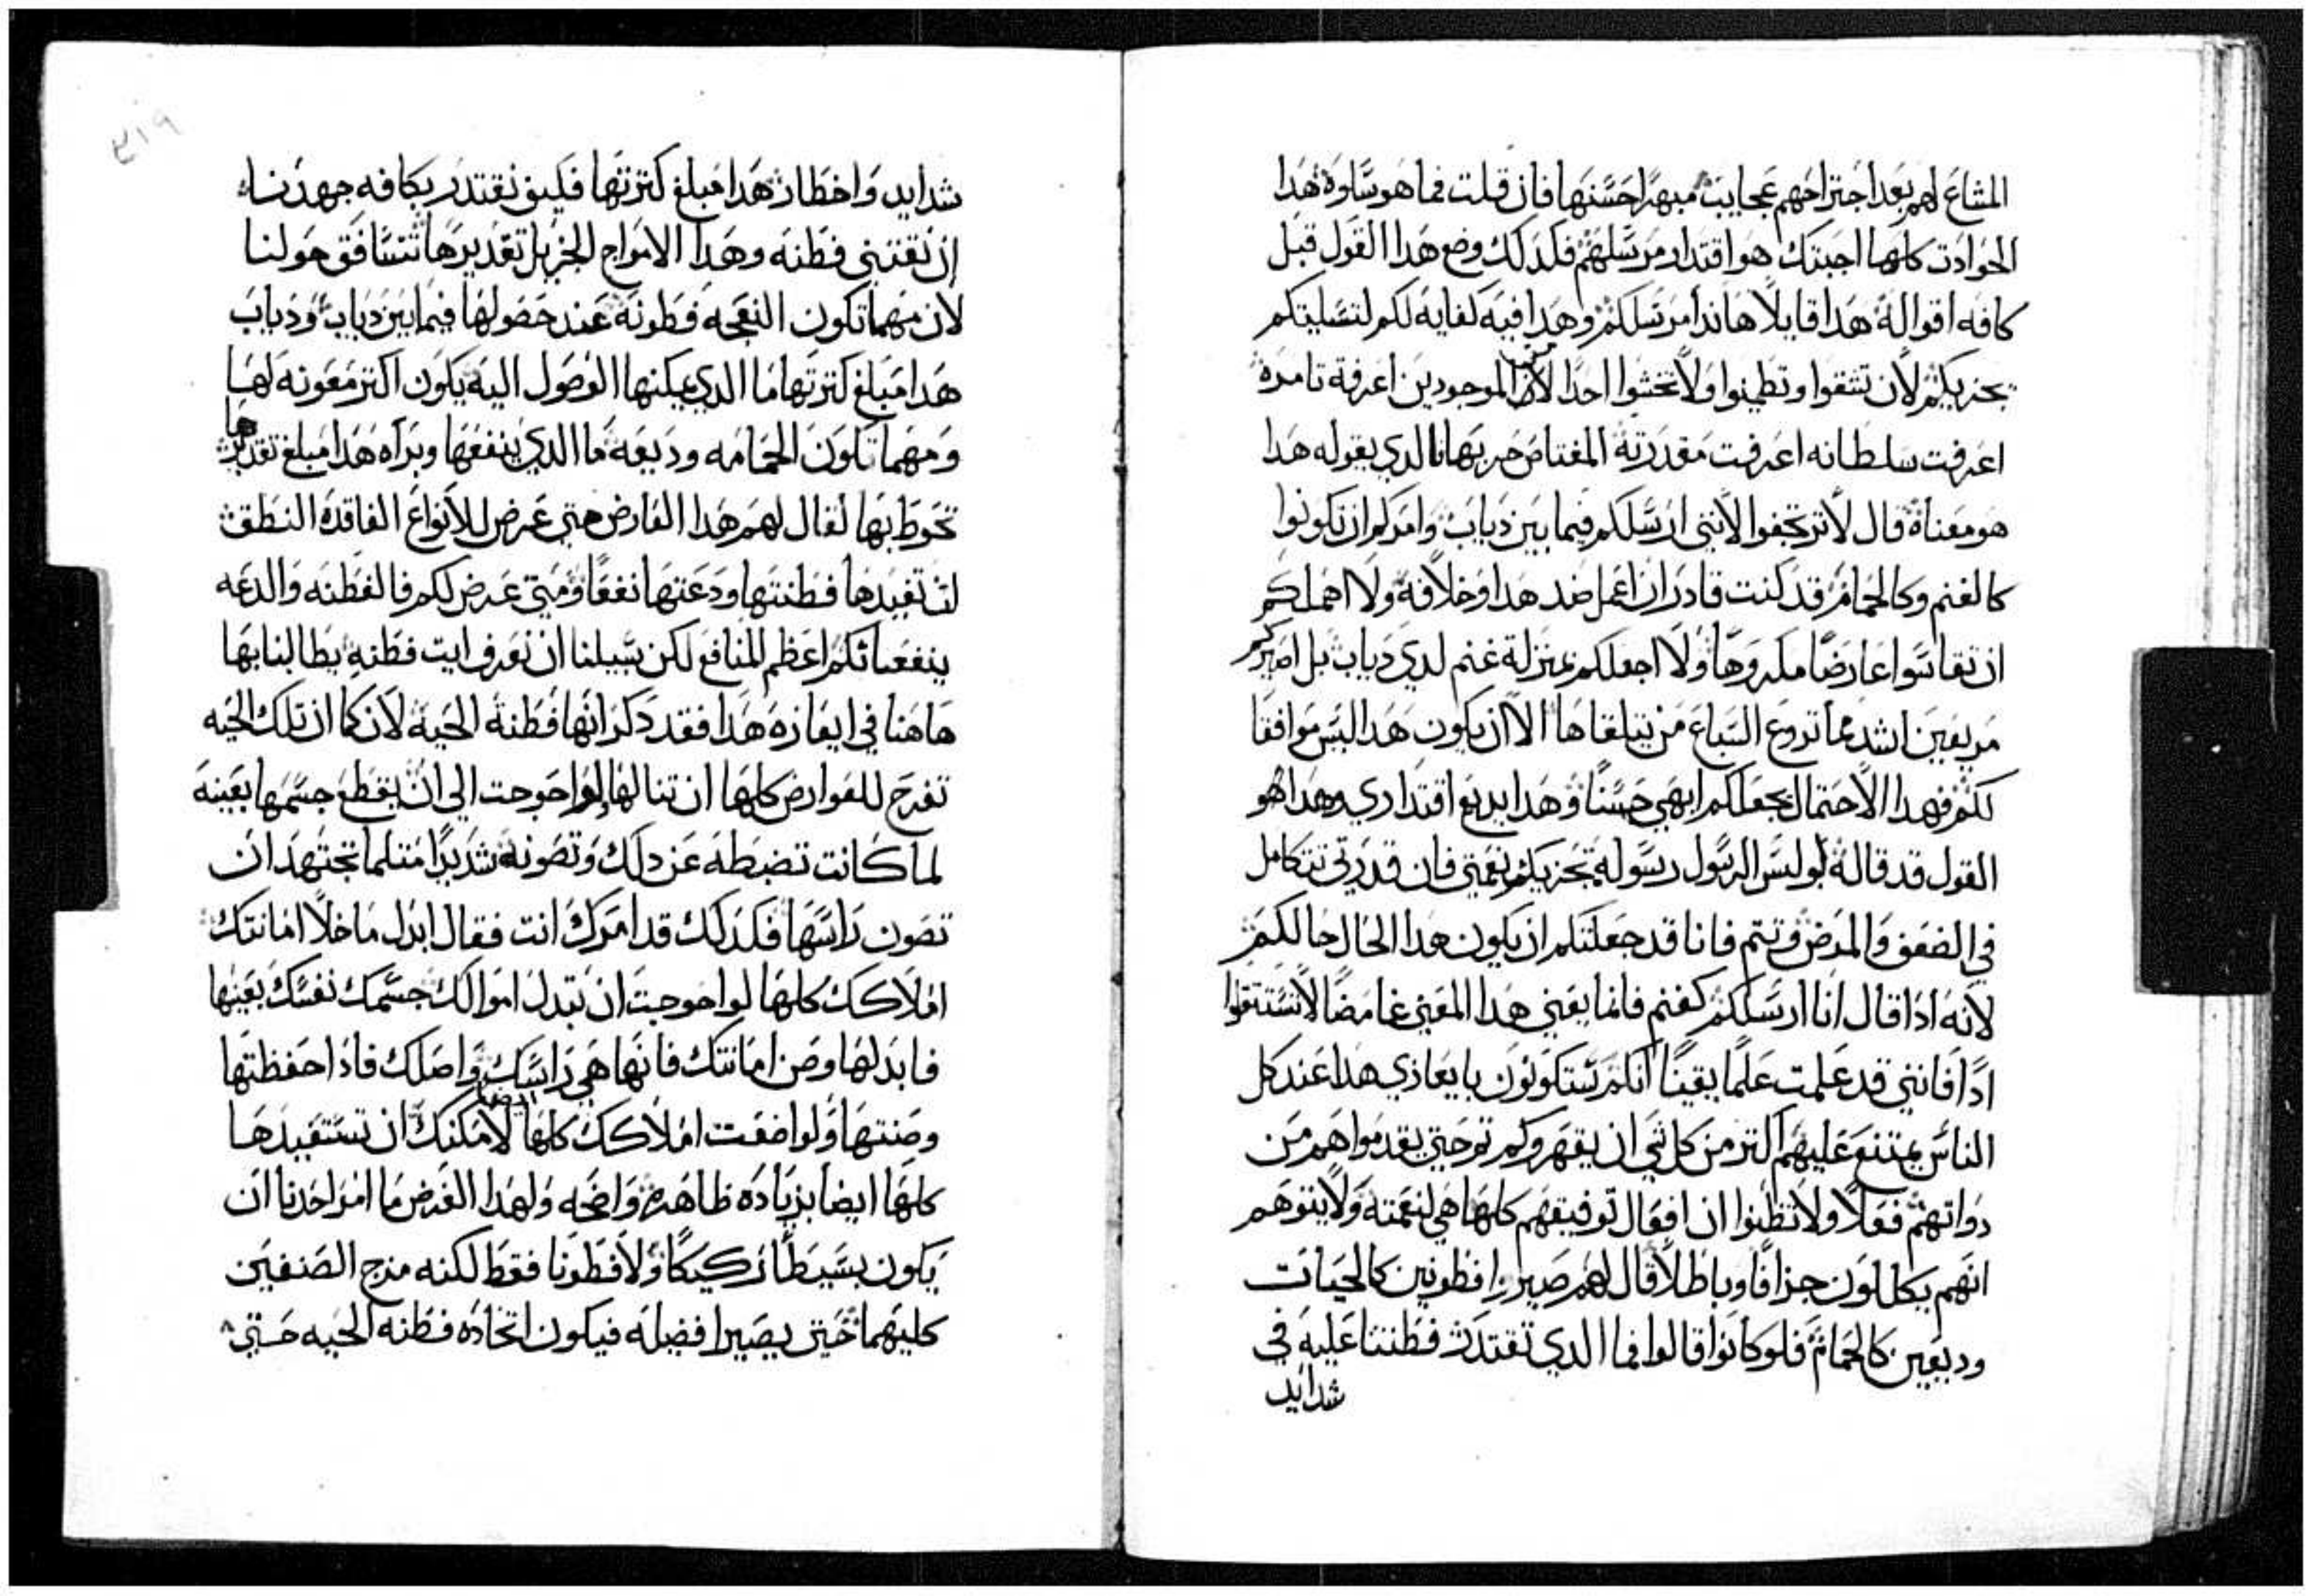 المشاع لهم بعد اجتراحهم عجايب مبهرًا حسنها فان قلت فما هو سلوة هدا
الحوادت كلها اجبتك هو اقتدار مرسلهم فلدلك وضع هدا القول قبل
كافه اقواله هدا قايلًا هاندا مرسلكم وهدا فيه كفايه لكم لتسليتكم
يجزيكم لان تتقوا وتطمنوا ولا تخشوا احدًا من الموجودين اعرفة تامره
اعرفت سلطانه اعرفت مقدرته المفتاص حربها فالدي يقوله هدا
هو معناه قال لا ترتجفوا لانني ارسلكم فيما بين دياب وامركم ان تكونوا
كالغنم وكالحمام قد كنت قادرًا ان اعمل ضد هدا وخلافه ولا اهملكم
ان تقاسوا عارضًا مكروهًا ولا اجعلكم بمنزلة غنم لدي دياب بل اصيركم
مريعين اشد مما تروع السباع من يتلقاها الا ان يكون هدا ليس موافقا
لكم فهدا الاحتمال يجعلكم ابهي حسنًا وهدا يديع اقتداري وهدا هو
القول قد قاله لبولس الرسول رسوله تجزيك نعمتي فان قدرتي تتكامل
في الضعف والمرض وتتم فانا قد جعلتكم ان يكون هدا الحال حالكم
لانه ادا قال انا ارسلكم كغنم فانما يعني هدا المعني غامضًا لا تستتقلوا
ادًا فانني قد علمت علمًا يقينًا انكم ستكونون بايعازي هدا عند كل
الناس يمتنع عليهم اكتر من كل شي ان يقهروكم تم حتي يقدموا هم من
دواتهم فعلًا ولا تظنوا ان افعال توفيقهم كلها هي لنعمته ولا يتوهم
انهم يكللون جزافًا وباطلًا قال لهم صيروا فطونين كالحيات
ودبعين كالحمام فلو كانوا قالوا فما الدي تقتدر فطنتنا عليه في
شدايد
٣١٩
شدايد واخطار هدا مبلغ كترتها فكيف نقتدر بكافه جهدنا
ان نقتني فطنه وهدا الامواج الجزيل تقديرها تتسافق حولنا
لان مهما تكون النعجه فطونه عند حصولها فيما بين دياب ودياب
هدا مبلغ كترتها ما الدي يمكنها الوصول اليه يكون اكتر معونه لها
ومهما تكون الحمامه وديعه ما الدي ينفعها وبزاه هدا مبلغ تقديرها
تحوط بها لقال لهم هدا العارض متي عرض للانواع الفاقده النطق
لن تفيدها فطنتها ودعتها نفعًا ومتي عرض لكم فالفطنه والدعه
ينفعانكم اعظم المنافع لكن سبيلنا ان نعرف ايت فطنه يطالبنا بها
هاهنا في ايعازه هدا فقد دكر انها فطنة الحيه لان كما ان تلك الحيه
تفرج للعوارض كلها ان تنالها ولو احوجت الي ان يقطع جسمها بعينه
لما كانت تضبطه عن دلك وتصونه شديدًا متلما تجتهد ان
تصون راسها فكدلك قد امرك انت فقال ابدل ما خلا امانتك
املاكك كلها لو احوجت ان تبدل اموالك جسمك نفسك بعينها
فابدلها وصن امانتك فانها هي راسك واصلك فادا حفظتها
وصنتها ولو اضعت املاكك كلها لامكنك ايضا ان تستفيدها
كلها ايضا بزياده ظاهره واضحه ولهدا الغرض ما امر احدنا ان
يكون بسيطًا ركيكًا ولا فطونا فقط لكنه مزج الصنفين
كليهما حتي يصيرا فضيله فيكون اتخاده فطنه الحيه حتي